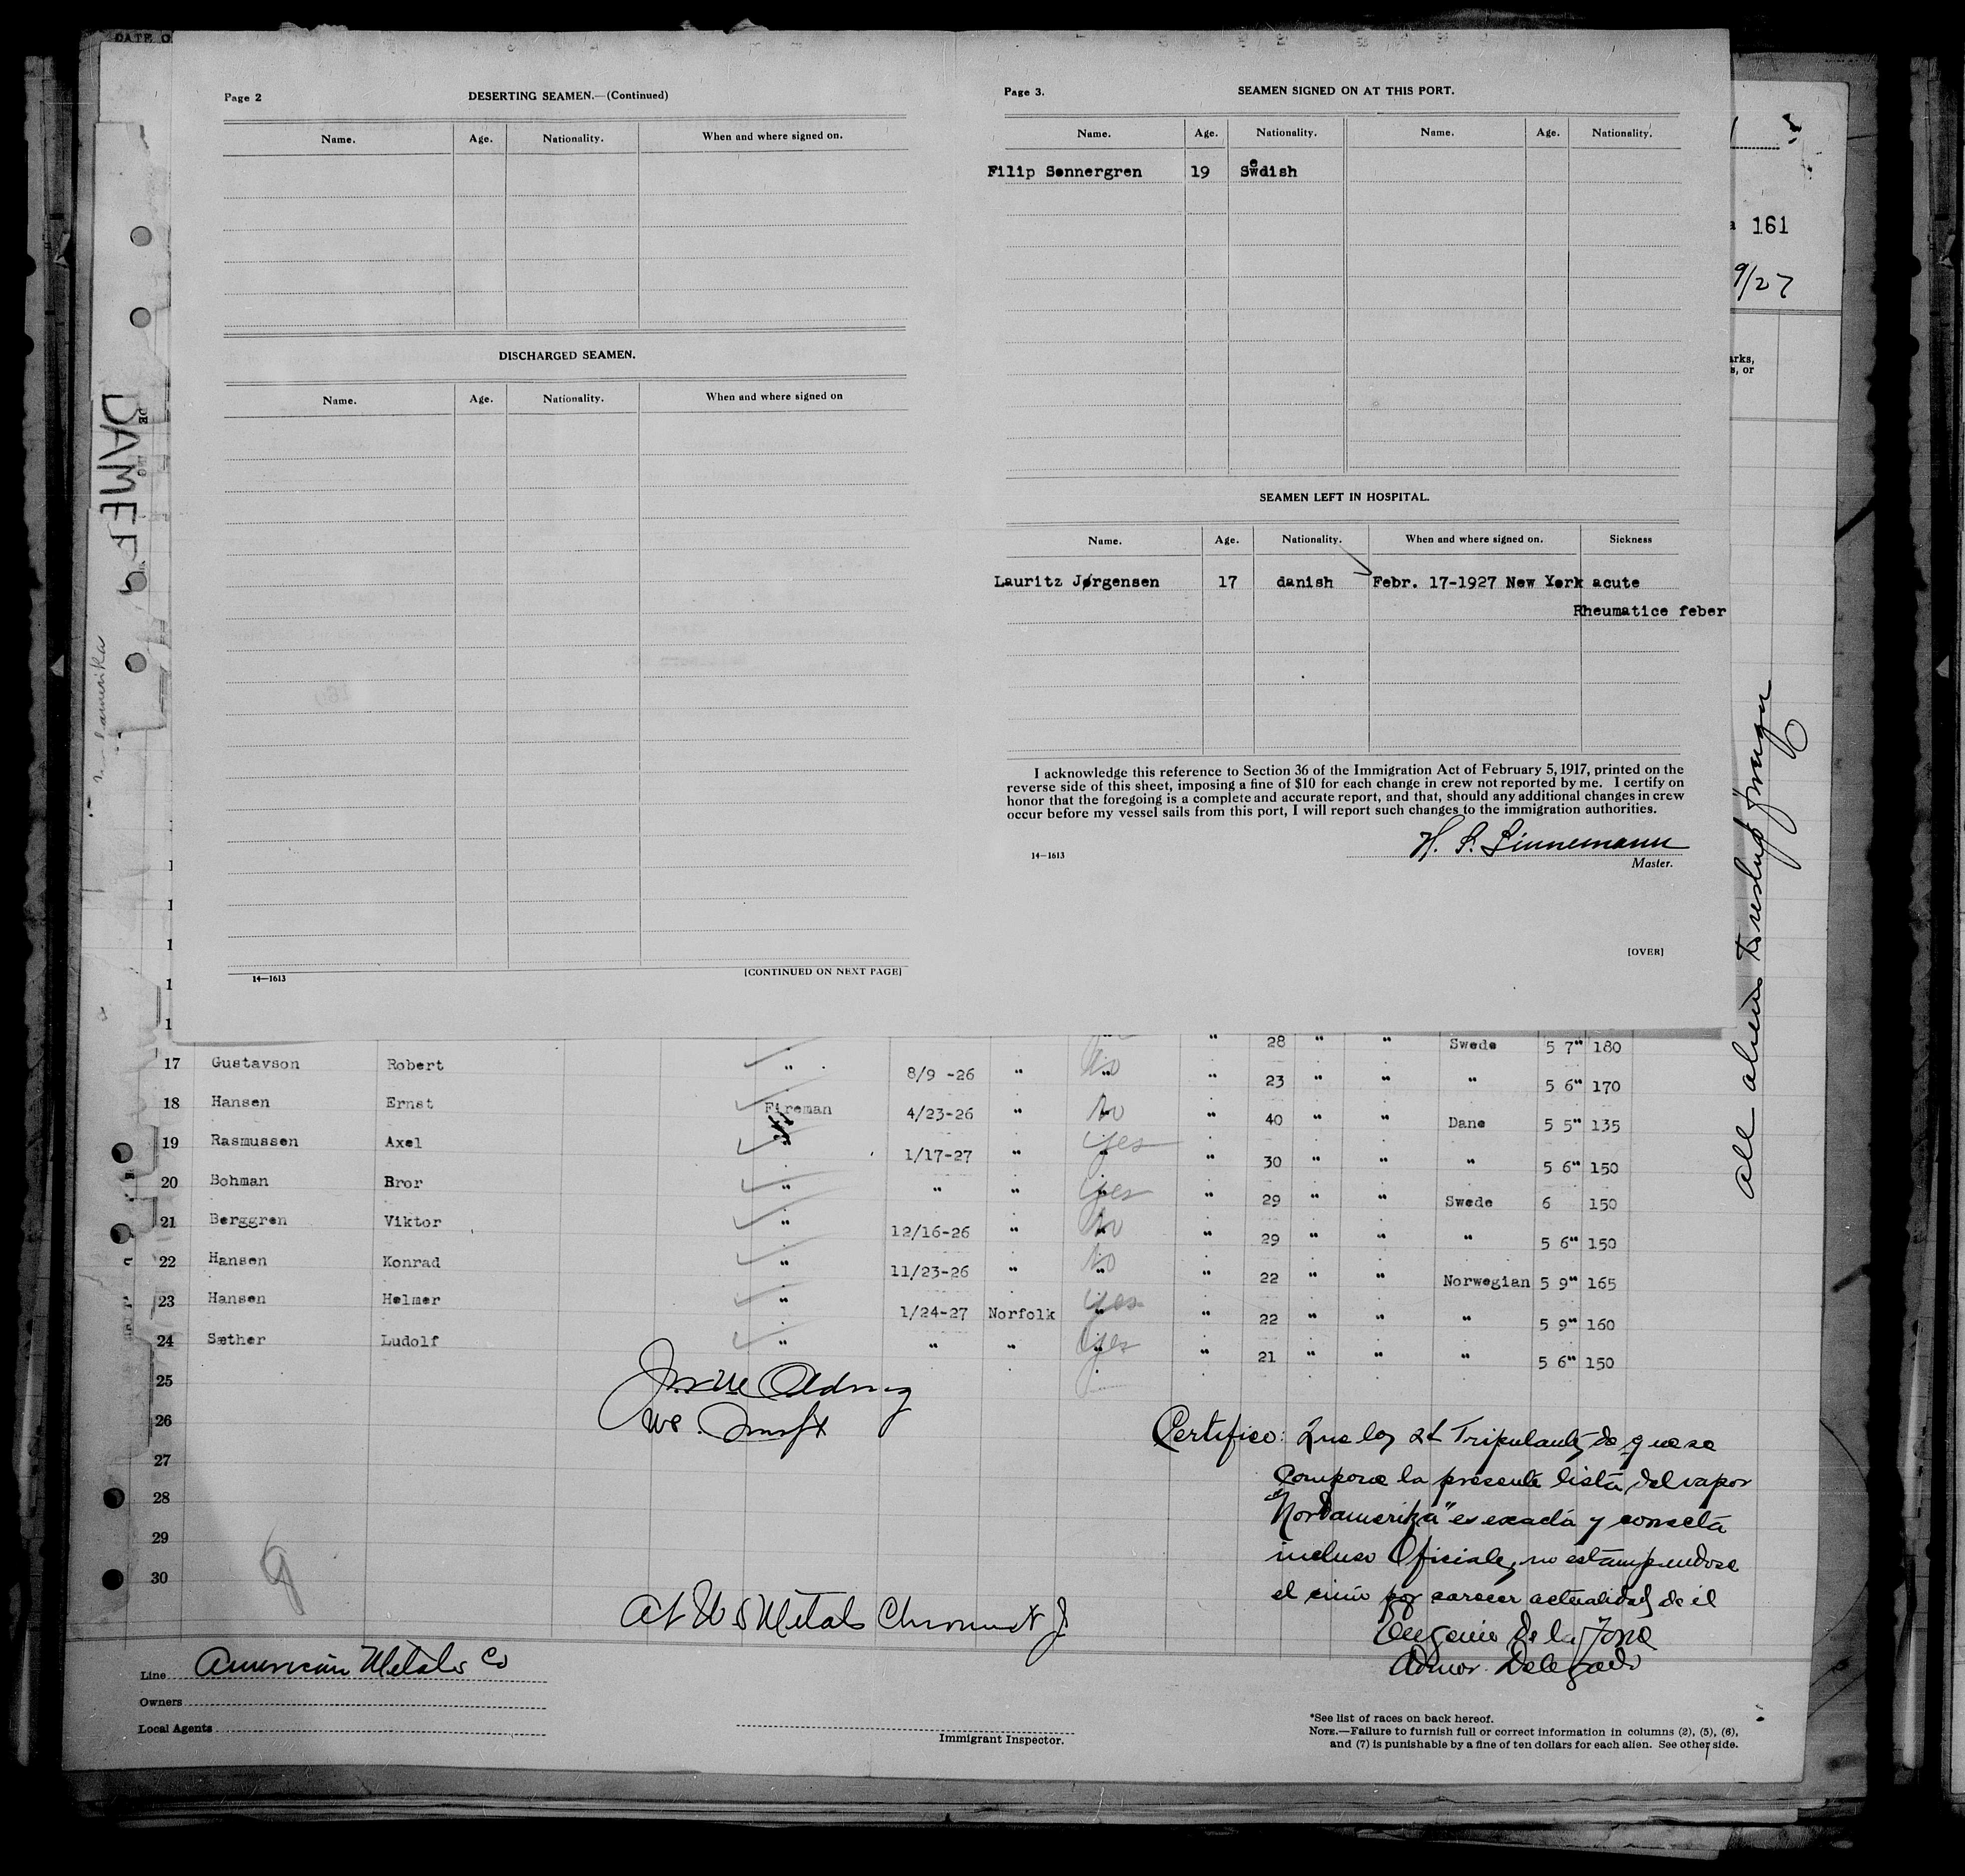 DATE O
Page 2
DESERTING SEAMEN.—(Continued)
Name. Age. Nationality. When and where signed on.
DISCHARGED SEAMEN.
Name. Age. Nationality. When and where signed on
14—1613 [CONTINUED ON NEXT PAGE]
Page 3.
SEAMEN SIGNED ON AT THIS PORT.
Name. Age. Nationality. Name. Age. Nationality.
Filip Sonnergren 19 Swedish
SEAMEN LEFT IN HOSPITAL.
Name. Age. Nationality. When and where signed on. Sickness
Lauritz Jørgensen 17 danish Febr. 17-1927 New York acute
Rheumatice feber
I acknowledge this reference to Section 36 of the Immigration Act of February 5, 1917, printed on the
reverse side of this sheet, imposing a fine of $10 for each change in crew not reported by me. I certify on
honor that the foregoing is a complete and accurate report, and that, should any additional changes in crew
occur before my vessel sails from this port, I will report such changes to the immigration authorities.
H. S. Linnemann
14—1613
Master.
[OVER]
161
9/27
arks,
s, or
All aliens
" 28 " " Swede 5 7" 180
17 Gustavson Robert " 8/9 -26 " No " 23 " " " 5 6" 170
18 Hansen Ernst Fireman 4/23-26 " No " 40 " " Dane 5 5" 135
19 Rasmussen Axel 1/17-27 " yes " 30 " " " 5 6" 150
20 Bohman Bror " " " yes " 29 " " Swede 6 150
21 Berggren Viktor " 12/16-26 " No " 29 " " " 5 6" 150
22 Hansen Konrad " 11/23-26 " No " 22 " " Norwegian 5 9" 165
23 Hansen Helmer " 1/24-27 Norfolk yes " 22 " " " 5 9" 160
24 Sæther Ludolf " " " yes " 21 " " " 5 6" 150
25
26
27
28
29
30
Certifico: Que los 24 Tripulantes de que se
compone la presente lista del vapor
"Nordamerika" es exacta y correcta
incluso Oficiales, no estampandose
el por carecer actualidad de el
Eugenio De la
Admor. Delegado
At U S Metals
Line American Metals Co
Owners
Local Agents
Immigrant Inspector.
*See list of races on back hereof.
NOTE.—Failure to furnish full or correct information in columns (2), (5), (6),
and (7) is punishable by a fine of ten dollars for each alien. See other side.